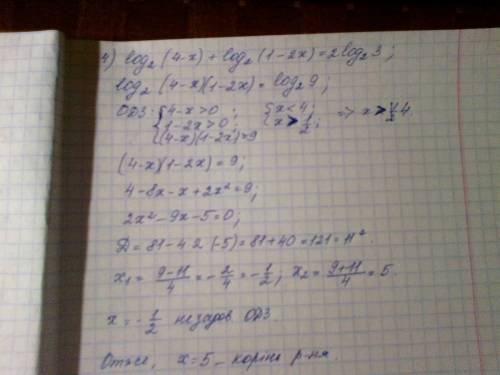 4) log₂(4-x)+log₂(1-2x)=2log₂3;
log₂(4-x)(1-2x)=log₂9;
ОДЗ: {4-x>0; {x<4;
1-2x>0; x>1/2; => x>
(4-x)(1-2x)=9
(4-x)(1-2x)=9;
4-8x-x+2x²=9;
2x²-9x-5=0;
D=81-4·2·(-5)=81+40=121=11².
x₁=(9-11)/4=-2/4=-1/2; x₂=(9+11)/4=5.
x=-1/2 не задов. ОДЗ.
Отже, x=5 - корінь р-ня.